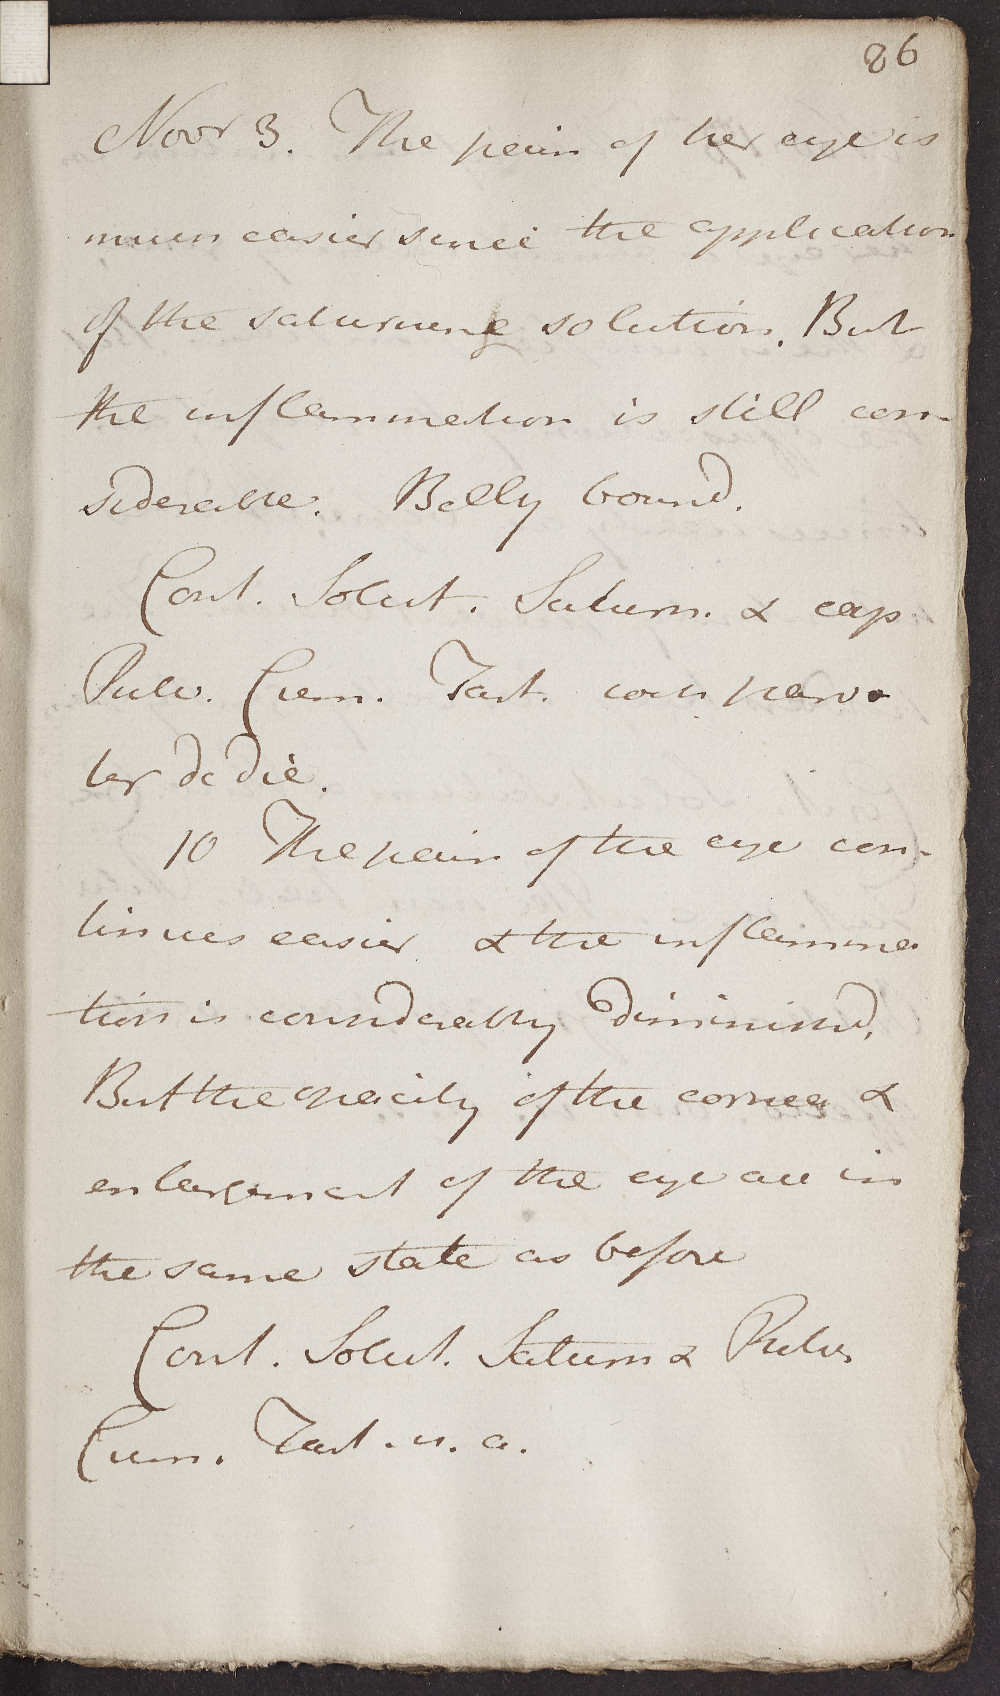 86
Novr 3. The pain of her eye is
much easier since the application
of the saturnine solution. But
the inflammation is still con-
siderable. Belly bound.
Cont. Solut. Saturn. & cap
Pulv. Crem. Tart. coch parv.
ter de die.
10 The pain of the eye con-
tinues easier & the inflamma
tion is considerably diminishd,
But the opacity of the cornea &
enlargement of the eye are in
the same state as before
Cont. Solut. Saturn & Pulv.
Crem. Tart. u. a.